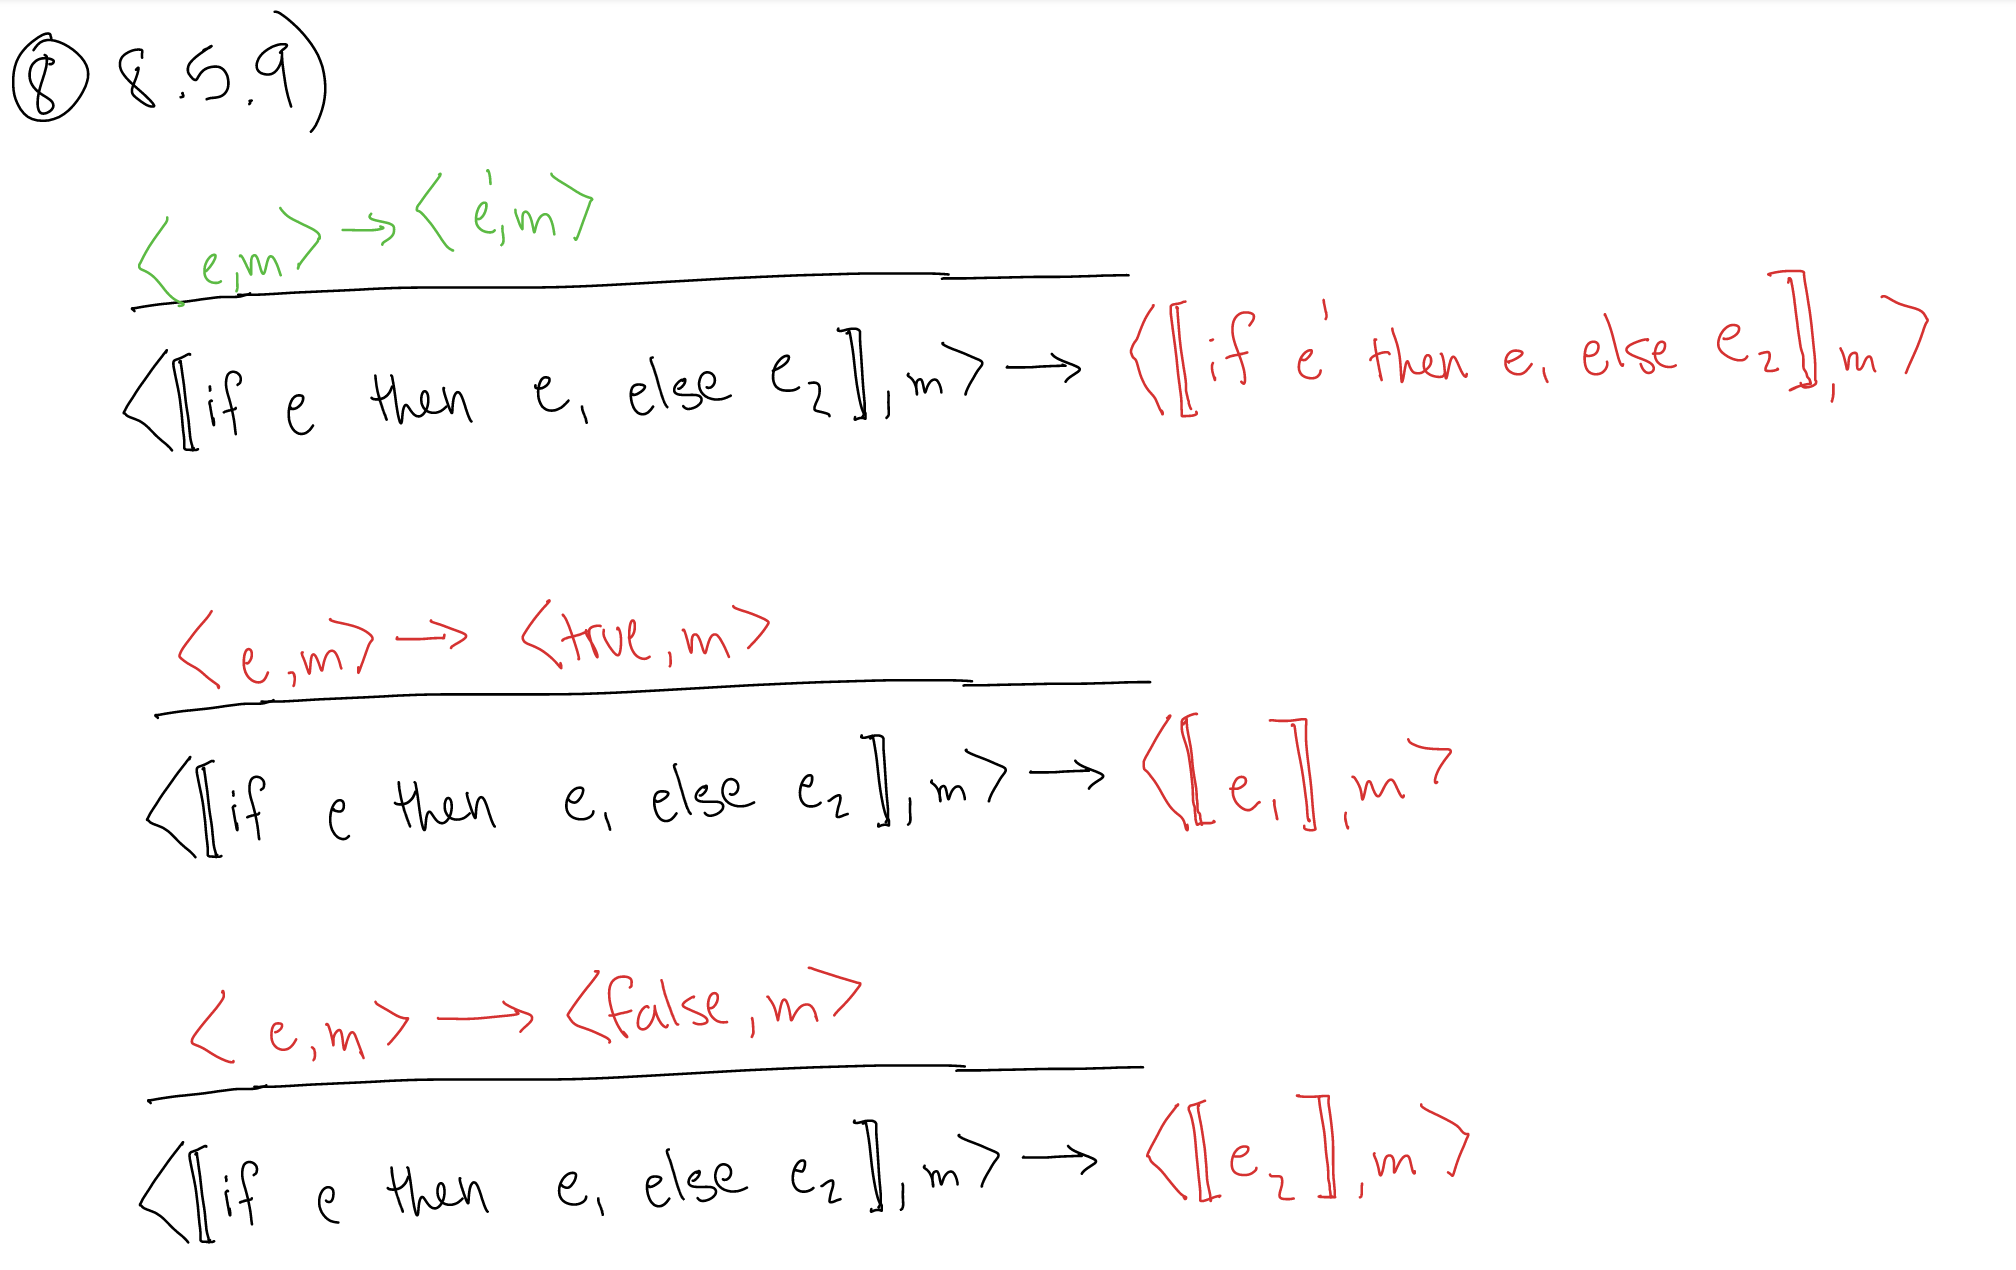 ⑧ 8.5.9)
<e,m> → <e',m>
<⟦if e then e₁ else e₂⟧,m> → <⟦if e' then e₁ else e₂⟧,m>
<e,m> → <true,m>
<⟦if e then e₁ else e₂⟧,m> → <⟦e₁⟧,m>
<e,m> → <false,m>
<⟦if e then e₁ else e₂⟧,m> → <⟦e₂⟧,m>